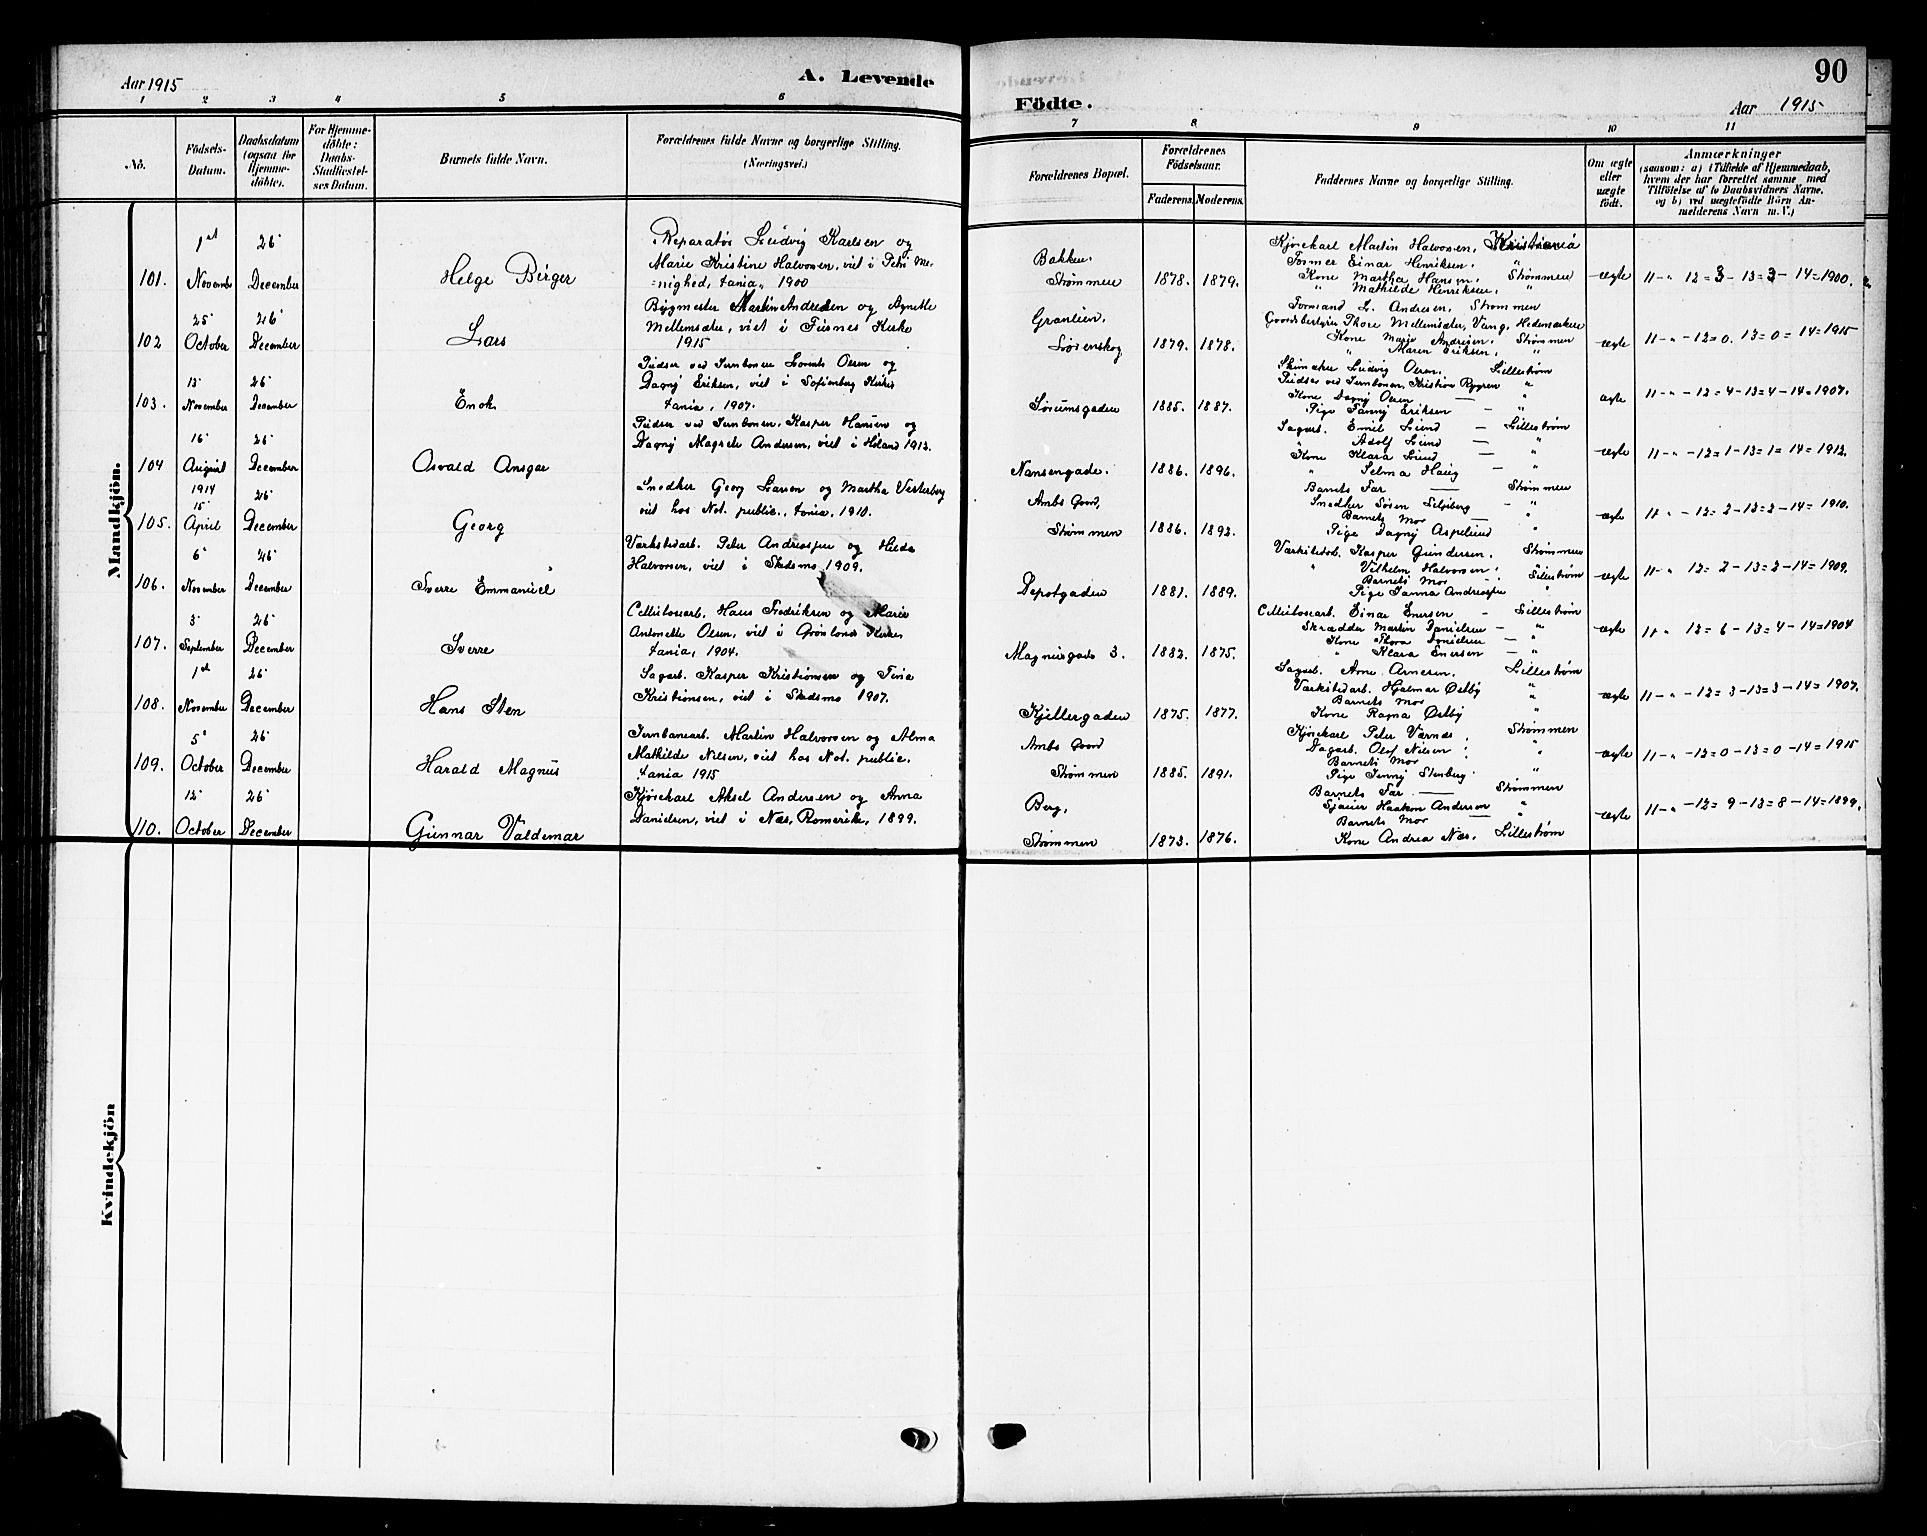 Aar 1915
A. Levende
1 2 3 4 5 6
No.
Födsels-
Datum.
Daabsdatum
(ogsaa for
Hjemme-
döbte).
For Hjemme-
döbte:
Daabs-
Stadfæstel-
ses Datum.
Barnets fulde Navn.
Forældrenes fulde Navne og borgerlige Stilling.
(Næringsvei.)
Mandkjön.
101.
1st
November
26
December
Helge Birger
Reparatør Ludvig Karlsen og
Marie Kristine Halvorsen, viet i Petri Me-
nighed, tania, 1900
102
25
October
26
December
Lars
Bygmester Martin Andresen og Agnethe
Mellemsæter, viet i Fusnes Kirke
1915
103.
13
November
26
December
Enok
Pudser ved Jernbanen Lorents Olsen og
Dagny Eriksen, viet i Sofienberg Kirke
tania, 1907.
104
16
August
1914
26
December
Osvald Ansgar
Pudser ved Jernbanen, Kasper Hansen og
Dagny Magrete Andersen, viet i Høland 1912.
105.
15
April
26
December
Georg
Snedker Georg Larsen og Martha Vesterberg
viet hos Not. public., tania, 1910.
106.
6
November
26
December
Sverre Emmanuel
Værkstedarb. Peter Andreassen og Hilda
Halvorsen, viet i Skedsmo 1909.
107.
3
September
26
December
Sverre
Cellulosearb. Hans Fredriksen og Marie
Antonette Olsen, viet i Grønlands Kirke,
tania, 1904.
108.
1st
November
26
December
Hans Sten
Sagarb. Kasper Kristiansen og Tina
Kristiansen, viet i Skedsmo 1907.
109.
5
October
26
December
Harald Magnus
Jernbanearb. Martin Halvorsen og Alma
Mathilde Nilsen, viet hos Not. public.
tania 1915
110.
12
October
26
December
Gunnar Valdemar
Kjørekarl Aksel Andersen og Anna
Danielsen, viet i Næs, Romerike, 1899.
Kvindekjön
90
Födte.
Aar 1915
7 8 9 10 11
Forældrenes Bopæl.
Forældrenes
Födselsaar.
Faderens. Moderens.
Faddernes Navne og borgerlige Stilling.
Om ægte
eller
uægte
födt.
Anmærkninger
(saasom: a) i Tilfælde af Hjemmedaab,
hvem der har forrettet samme med
Tilföielse af to Daabsvidners Navne.
og b) ved uægtefödte Börn An-
melderens Navn m. V.)
Bakken.
Strømmen
1878. 1879.
Kjørekarl Martin Halvorsen, Kristiania
Former Einar Henriksen. "
Kone Martha Hansen. Strømmen
" Mathilde Henriksen. "
ægte
11 - " 12 = 3 - 13 = 3 - 14 = 1900.
Granlien,
Lørenskog
1879. 1878.
Formand L. Andresen, Strømmen
Gaardsbestyrer Thore Mellemsæter, Vang, Hedemarken
Kone Marie Andresen. Strømmen
" Maren Eriksen, "
ægte
11 - " - 12 = 0. 13 = 0 = 14 = 1915
Sørumsgaden
1885. 1887.
Skomaker Ludvig Olsen. Lillestrøm
Pudser ved Jernbanen, Kristian Rygren "
Kone Dagny Olsen — "
Pige Fanny Eriksen — "
ægte
11 - " - 12 = 4 - 13 = 4 - 14 = 1907.
Nansengade.
1886. 1896.
Sagarb. Emil Lund — Lillestrøm
" Adolf Lund — "
Kone Klara Lund — "
" Selma Haug — "
ægte
11 - " - 12 = 1 - 13 = 1 = 14 = 1912.
Ambs Gaard,
Strømmen
1886. 1892.
Barnets Far — Strømmen
Snedker Søren Seljeberg — "
Barnets Mor — "
Pige Dagny Aspelund "
ægte
11 - " - 12 = 2 - 13 = 2 - 14 = 1910.
Depotgaden
1881. 1889.
Værkstedarb. Kasper Gundersen. Strømmen
" Vilhelm Halvorsen. Lillestrøm
Barnets Mor — "
Pige Janna Andreassen "
ægte
11 - " 12 = 2 - 13 = 2 - 14 = 1909.
Magnusgade 3.
1882. 1875.
Cellulosearb. Einar Enersen — Lillestrøm
Skrædder Martin Danielsen — "
Kone Thora Danielsen — "
" Klara Enersen — "
ægte
11 - " 12 = 6 - 13 = 4 - 14 = 1904
Kjellergaden
1875. 1877.
Sagarb. Arne Arnesen. Lillestrøm
Værkstedarb. Hjalmar Østby "
Barnets Mor "
Kone Ragna Østby "
ægte
11 - " - 12 = 3 - 13 = 3 - 14 = 1907.
Ambs Gaard
Strømmen
1885. 1891.
Kjørekarl Peter Værnes. Strømmen
Dagarb. Olaf Nilsen. "
Barnets Mor "
Pige Jenny Stenberg. "
ægte
11 - " - 12 = 0 - 13 = 0 - 14 = 1915
Berg,
Strømmen
1873. 1876.
Barnets Far — Strømmen
Sjauer Haakon Andersen "
Barnets Mor — "
Kone Andrea Næs. Lillestrøm
ægte
11 - " - 12 = 9 - 13 = 8 - 14 = 1899.